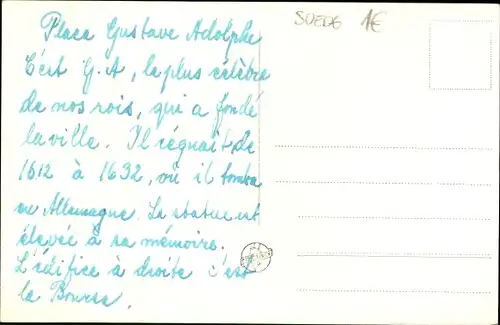 SUEDE 1€
Place Gustave Adolphe
C'est G. A, le plus célèbre
de nos rois, qui a fondé
la ville. Il régnait de
1612 à 1632, où il tomba
en Allemagne. La statue est
élevée à sa mémoire.
L'édifice à droite c'est
la Bourse.